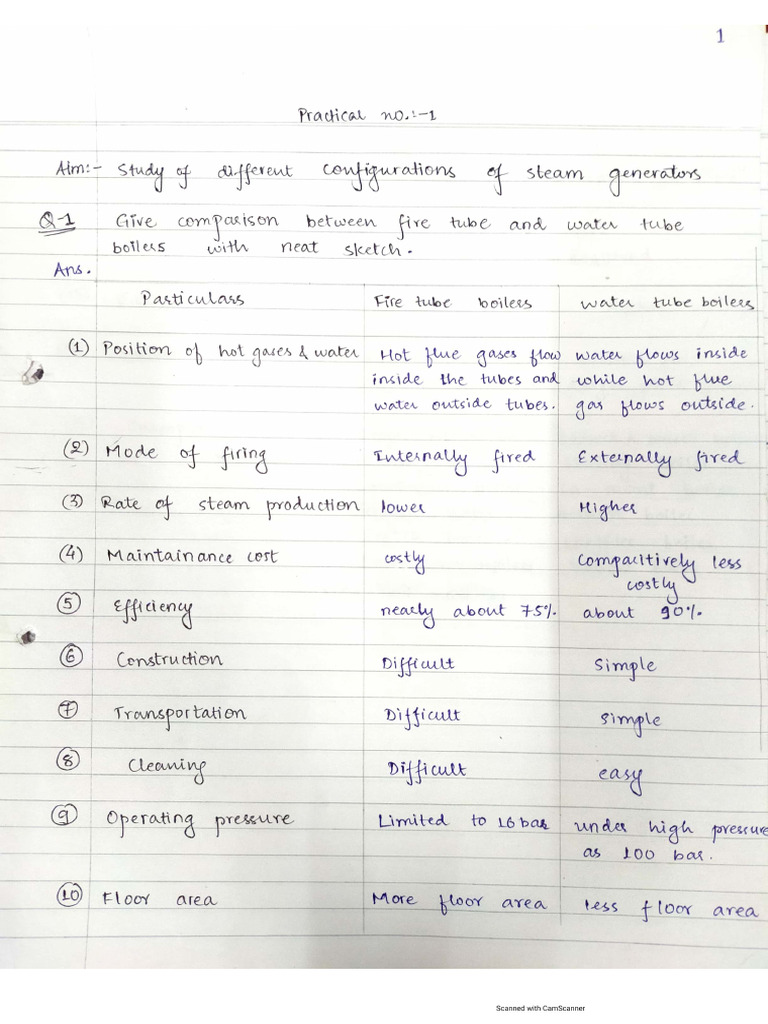 1
Practical no.:-1
Aim:- Study of different configurations of steam generators
Q-1 Give comparison between fire tube and water tube
boilers with neat sketch.
Ans.
Particulars Fire tube boilers water tube boilers
(1) Position of hot gases & water Hot flue gases flow water flows inside
inside the tubes and while hot flue
water outside tubes. gas flows outside.
(2) Mode of firing Internally fired Externally fired
(3) Rate of steam production lower Higher
(4) Maintainance cost costly compacitively less
costly
(5) Efficiency nearly about 75% about 90%.
(6) Construction Difficult Simple
(7) Transportation Difficult simple
(8) Cleaning Difficult easy
(9) Operating pressure Limited to 16 bar under high pressure
as 100 bar.
(10) Floor area More floor area less floor area
Scanned with CamScanner